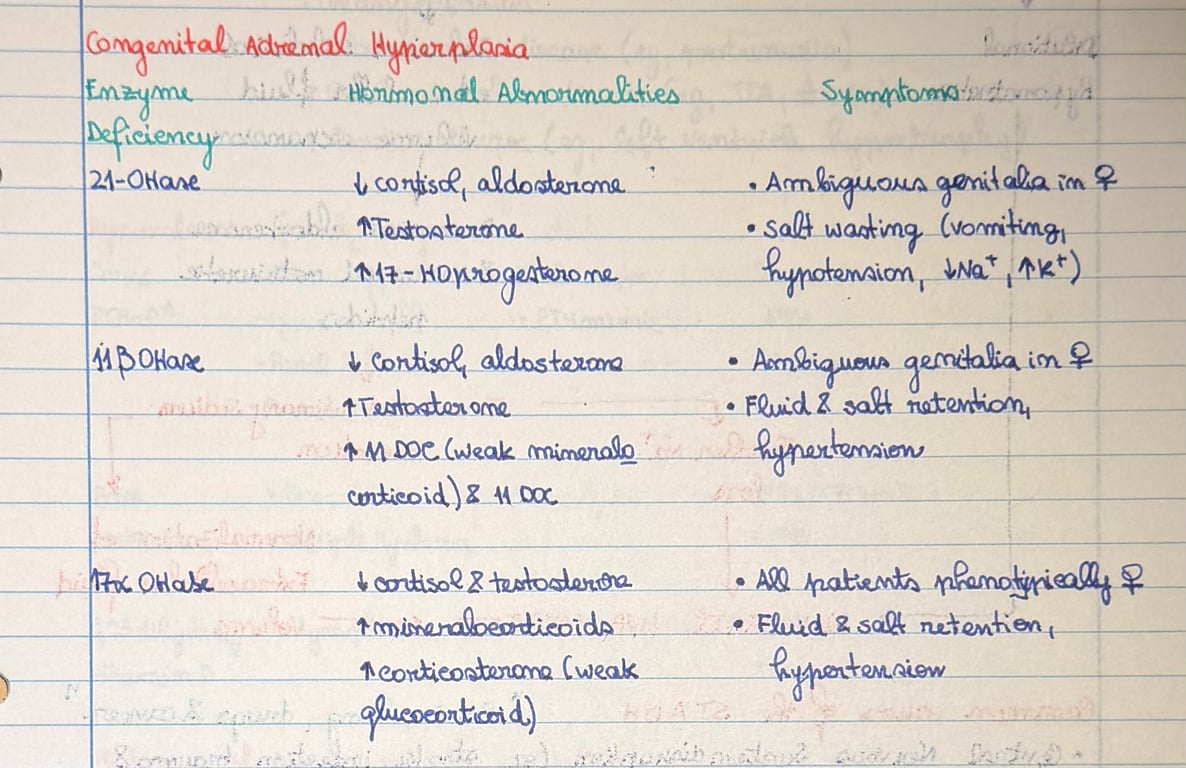 Congenital Adrenal Hyperplasia
Enzyme Hormonal Abnormalities Symptoms
Deficiency
21-OHase ↓ cortisol, aldosterone • Ambiguous genitalia in ♀
↑Testosterone • Salt wasting (vomiting,
↑17-HOprogesterone hypotension, ↓Na⁺, ↑K⁺)
11β OHase ↓ Cortisol, aldosterone • Ambiguous genitalia in ♀
↑Testosterone • Fluid & salt retention,
↑ 11 DOC (weak mineralo hypertension
corticoid) & 11 DOC
17α OHase ↓ cortisol & testosterone • All patients phenotypically ♀
↑mineralocorticoids • Fluid & salt retention,
↑corticosterone (weak hypertension
glucocorticoid)